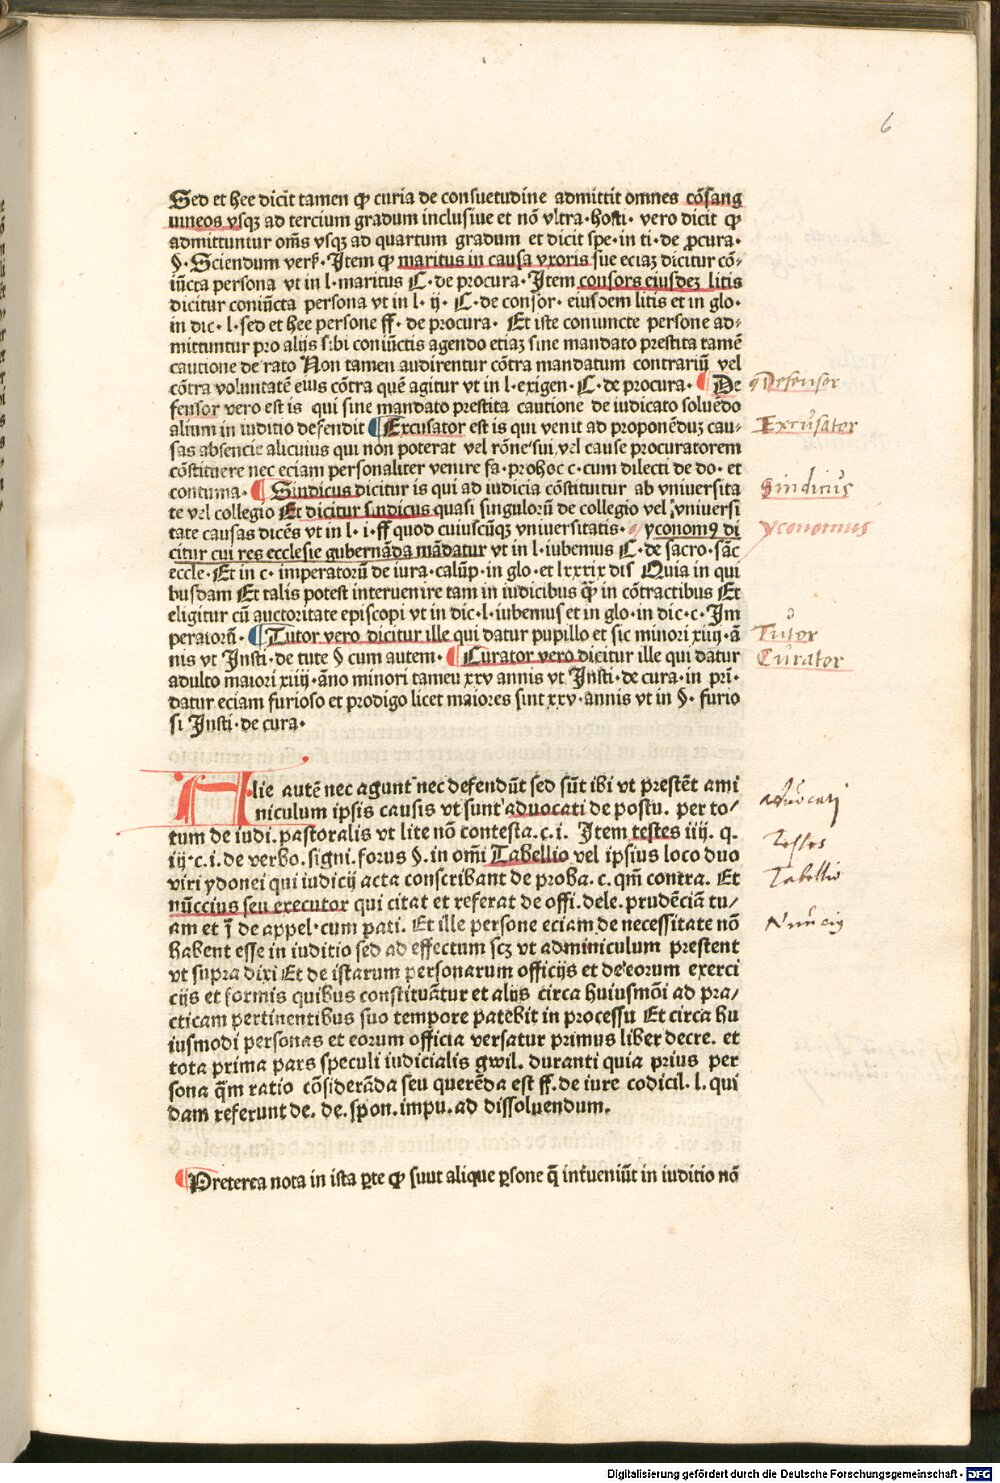 6
Sed et hee dicit tamen ꝙ curia de consuetudine admittit omnes cōsang
uineos vsqꝫ ad tercium gradum inclusiue et nō vltra·hosti· vero dicit ꝙ
admittuntur om̄s vsqꝫ ad quartum gradum et dicit spe·in ti·de ꝓcura·
§·Sciendum ver̄·Item ꝙ maritus in causa vxoris sue eciaꝫ dicitur cō⸗
iūcta persona vt in l·maritus C·de procura·Item consors eiusdeꝫ litis
dicitur coniūcta persona vt in l· ij· C·de consor· eiusdem litis et in glo·
in dic·l·sed et hee persone ff·de procura· Et iste coniuncte persone ad⸗
mittuntur pro alijs sibi coniūctis agendo etiaꝫ sine mandato prestita tamē
cautione de rato Non tamen audirentur cōtra mandatum contrariū vel
cōtra voluntatē eius cōtra quē agitur vt in l·exigen·C·de procura· ¶ De
fensor vero est is qui sine mandato prestita cautione de iudicato soluēdo
alium in iuditio defendit ¶ Excusator est is qui venit ad proponēduꝫ cau⸗
sas absencie alicuius qui non poterat vel rōne sui vel cause procuratorem
cōstituere nec eciam personaliter venire fa·prohoc c·cum dilecti de do·et
contuma· ¶ Sindicus dicitur is qui ad iudicia cōstituitur ab vniuersita
te vel collegio Et dicitur sindicus quasi singulorū de collegio vel vniuersi
tate causas dicēs vt in l·i·ff quod cuiuscūqꝫ vniuersitatis· yconomꝰ di
citur cui res ecclesie gubernāda mādatur vt in l·iubemus C·de sacro·sāc
eccle·Et in c·imperatorū de iura·calūp·in glo·et lxxxix dis Quia in qui
busdam Et talis potest interuenire tam in iudicibus ꝙ̄ in cōtractibus Et
eligitur cū auctoritate episcopi vt in dic·l·iubemus et in glo·in dic·c·Im
peratorū· ¶ Tutor vero dicitur ille qui datur pupillo et sic minori xiiij·ā
nis vt Insti·de tute § cum autem· ¶ Curator vero dicitur ille qui datur
adulto maiori xiiij·āno minori tameu xxv annis vt Insti·de cura·in prī·
datur eciam furioso et prodigo licet maiores sint xxv·annis vt in §·furio
si Insti·de cura·
Defensor
Excusator
Sindicus
yconomus
Tutor
Curator
Alie autē nec agunt nec defendūt sed sūt ibi vt prestēt ami
niculum ipsis causis vt sunt aduocati de postu. per to/
tum de iudi.pastoralis vt lite nō contesta.c.i. Item testes iiij. q.
iij·c.i.de verbo.signi.forus §.in om̄i Tabellio vel ipsius loco duo
viri ydonei qui iudicij acta conscribant de proba.c.qm̄ contra. Et
nūccius seu executor qui citat et referat de offi.dele.prudēciā tu/
am et j̄ de appel·cum pati. Et ille persone eciam de necessitate nō
habent esse in iuditio sed ad effectum scꝫ vt adminiculum prestent
vt supra dixi Et de istarum personarum officijs et de eorum exerci
cijs et formis quibus constituātur et alijs circa huiusmōi ad pra/
cticam pertinentibus suo tempore patebit in processu Et circa hu
iusmodi personas et eorum officia versatur primus liber decre. et
tota prima pars speculi iudicialis gwil. duranti quia prius per
sona q̄m ratio cōsiderāda seu querēda est ff.de iure codicil. l. qui
dam referunt de. de. spon.impu.ad dissoluendum.
aduocati
Testes
Tabellio
Nūncig
¶ Preterea nota in ista ꝑte ꝙ suut alique ꝑsone q̄ int̄ueniūt in iuditio nō
Digitalisierung gefördert durch die Deutsche Forschungsgemeinschaft - DFG